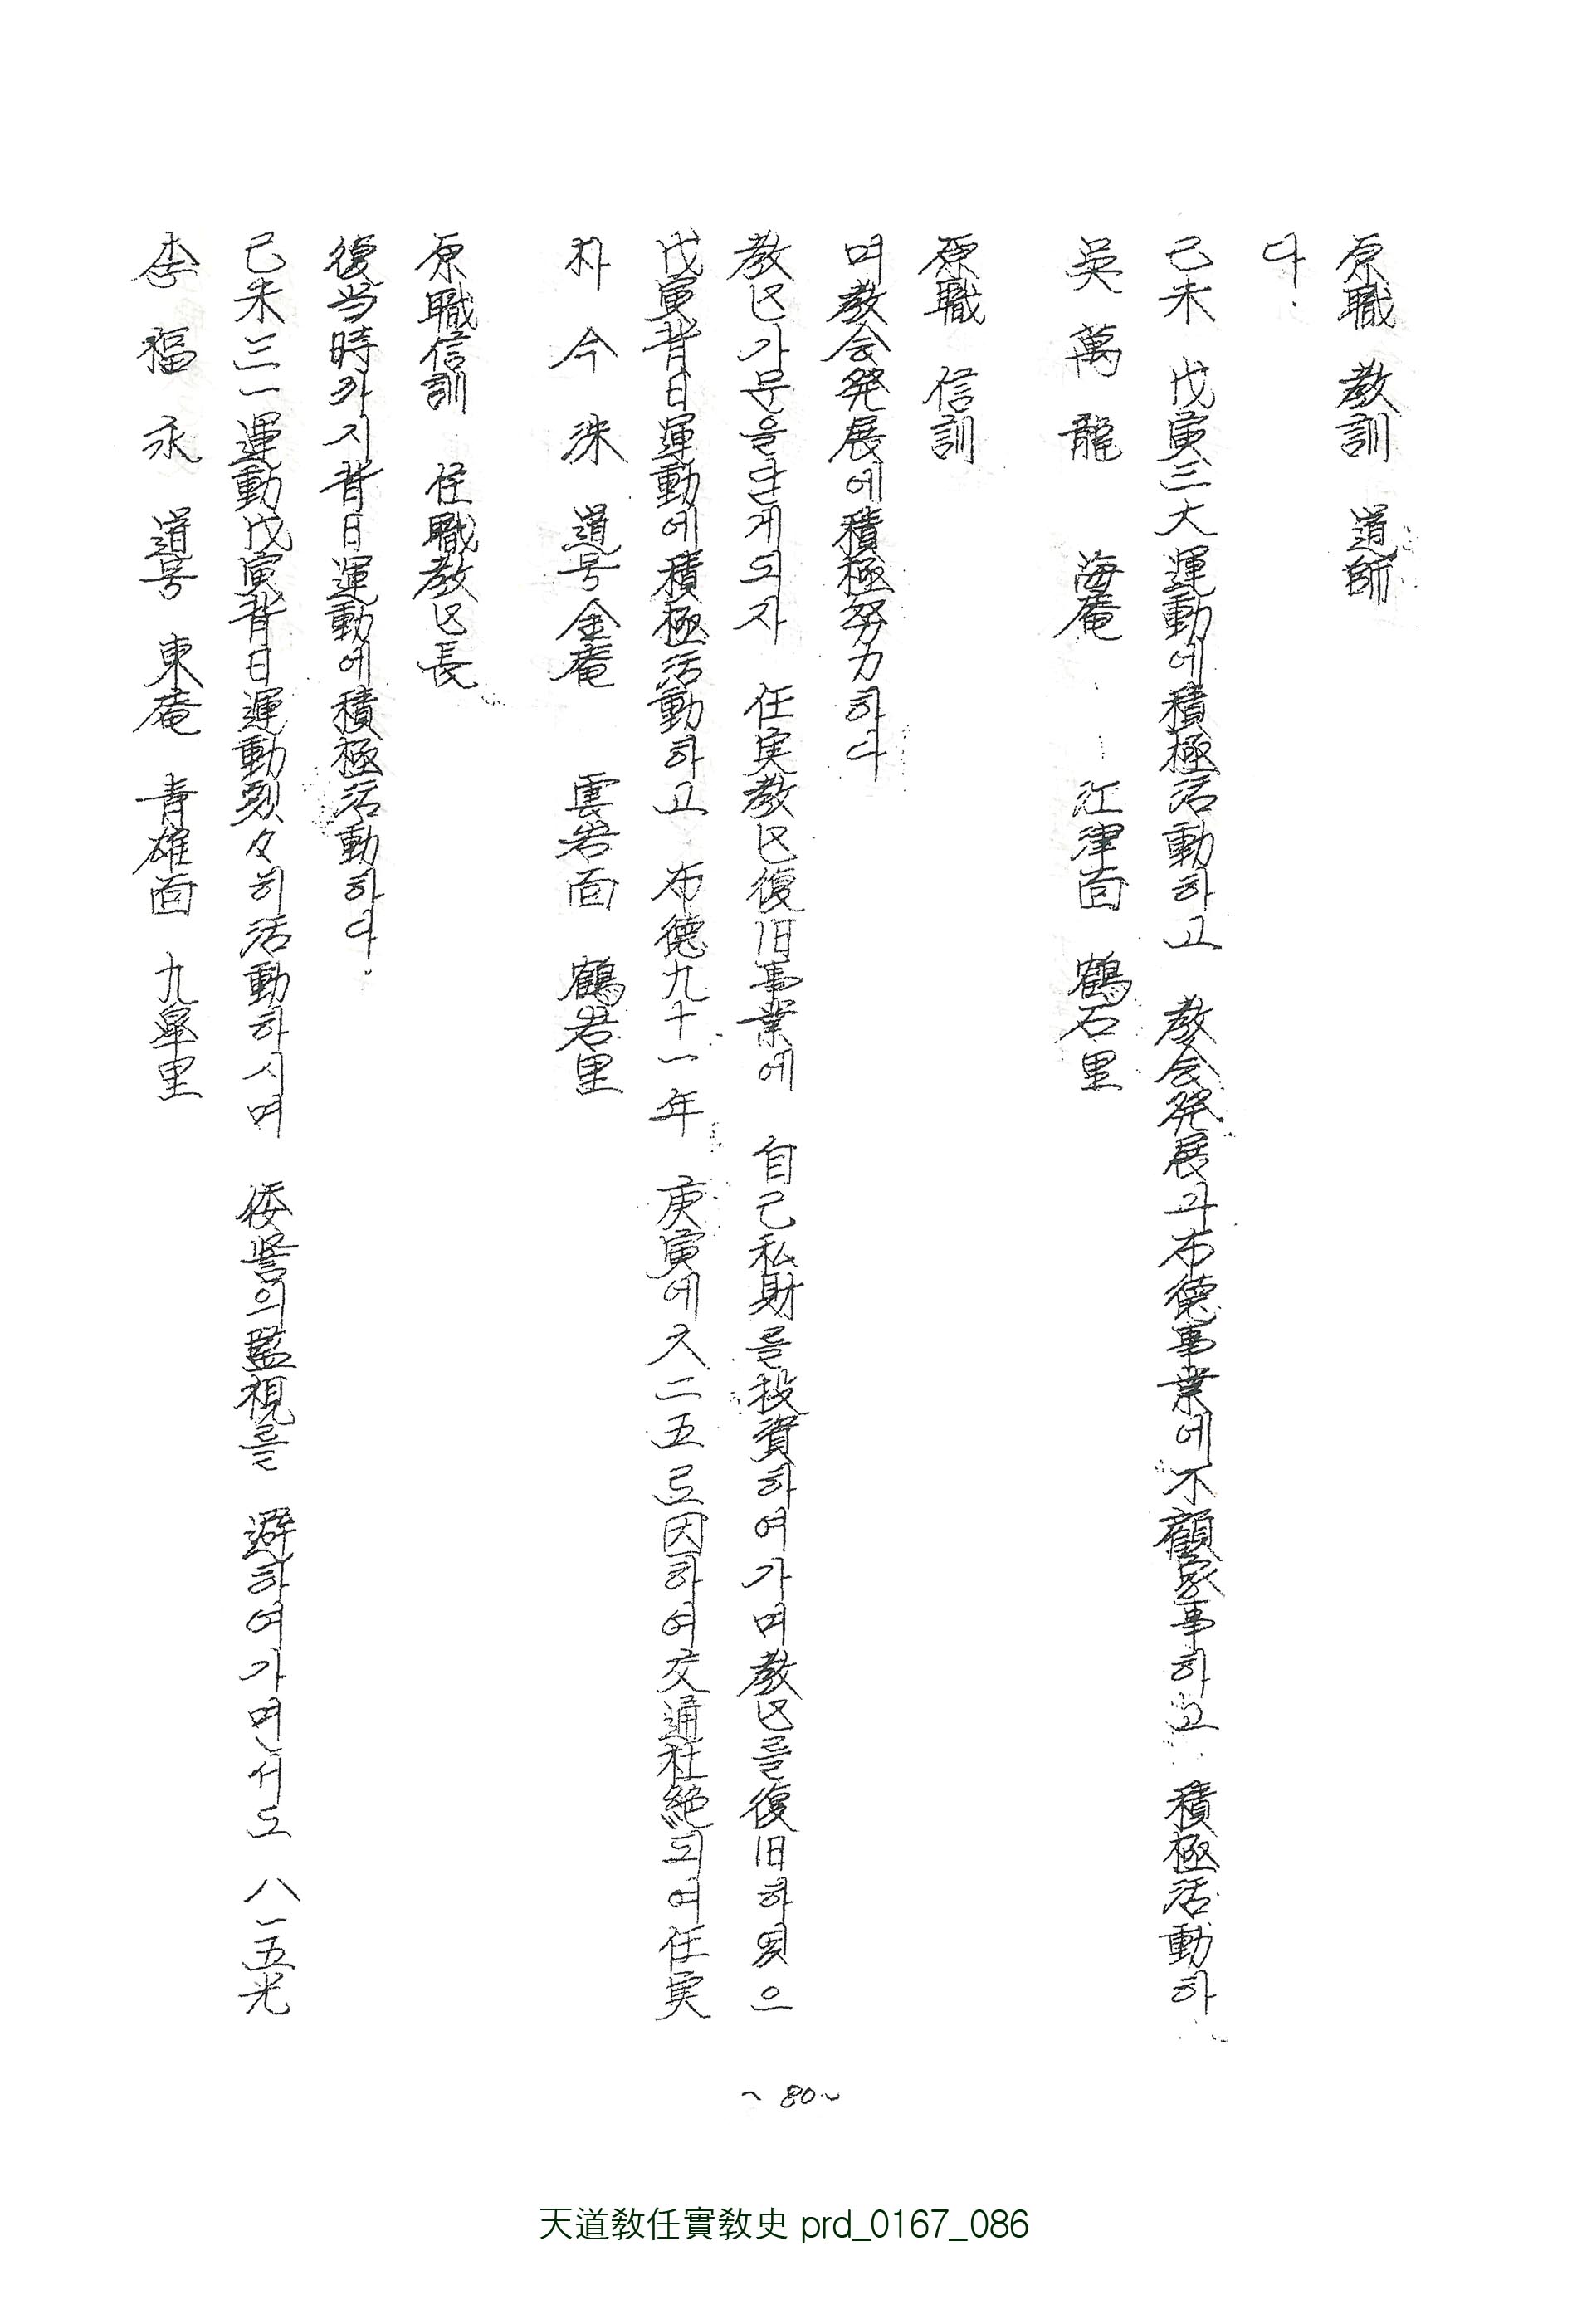 原職 敎訓 道師
다.
己未 戊寅 三大運動에積極活動하고 敎会発展과布德事業에不顧家事하고 積極活動하
吳萬龍 海菴 江津面 鶴石里
原職 信訓
며敎会発展에積極努力하다
敎区가문을닫게되자 任実敎区復旧事業에 自己私財를投資하여가며敎区를復旧하였으
戊寅背日運動에積極活動하고 布德九十一年 庚寅에六二五로因하여交通社絶되여任実
朴今洙 道号金菴 雲岩面 鶴岩里
原職信訓 任職敎区長
復当時까지背日運動에積極活動하다.
己未三一運動戊寅背日運動烈々히活動하시며 倭警의監視를 避하여가면서도 八一五光
李福永 道号 東菴 青雄面 九皐里
~80~
天道敎任實敎史 prd_0167_086